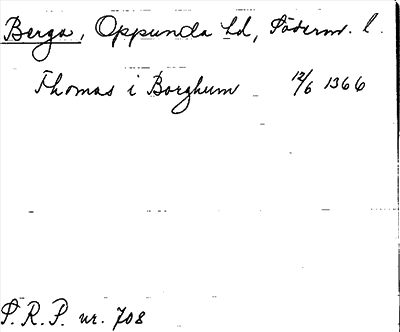 Berga, Oppunda hd, Söderm. l.
Thomas i Borghum 12/6 1366
S.R.P. nr. 708